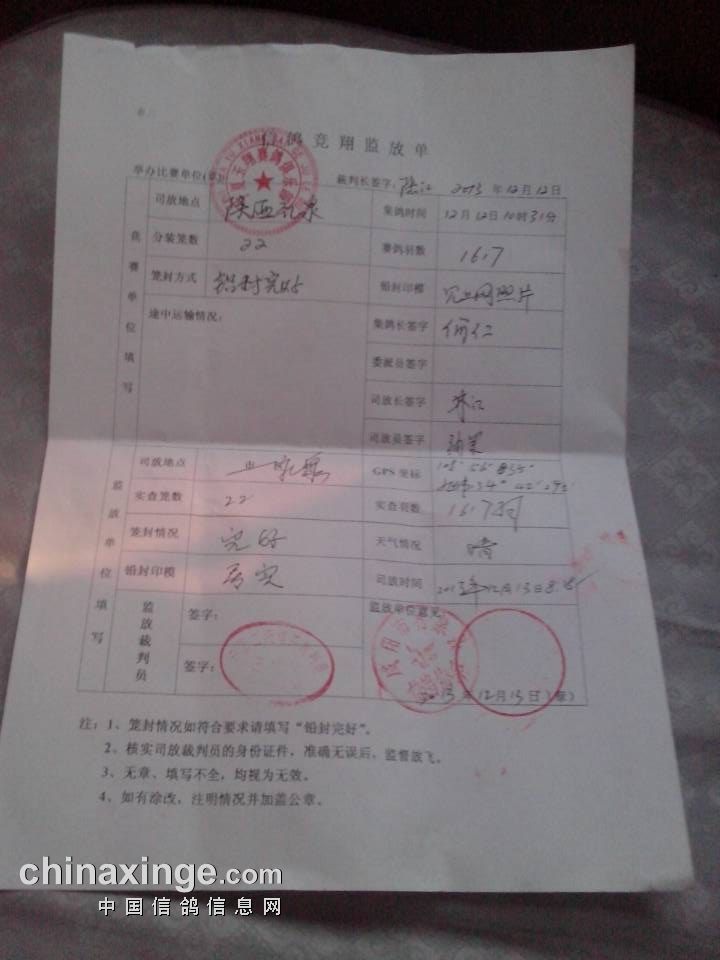 信鸽竞翔监放单
举办比赛单位(章) 裁判长签字: 2013 年 12 月 12 日
竞赛单位填写
司放地点 陕西礼泉 集鸽时间 12 月 12 日 10 时 31 分
分装笼数 22 赛鸽羽数 1617
笼封方式 铅封完好 铅封印模 见上网照片
途中运输情况: 集鸽长签字
委派员签字
司放长签字
司放员签字
监放单位填写
司放地点 GPS 坐标
实查笼数 22 实查羽数 1617羽
笼封情况 完好 天气情况 晴
铅封印模 司放时间 2013年12月13日8.
监放裁判员
签字: 监放单位意见:
签字:
2013 年 12 月 13 日 (章)
注: 1、笼封情况如符合要求请填写“铅封完好”。
2、核实司放裁判员的身份证件,准确无误后,监督放飞。
3、无章、填写不全,均视为无效。
4、如有涂改,注明情况并加盖公章。
chinaxinge.com
中国信鸽信息网